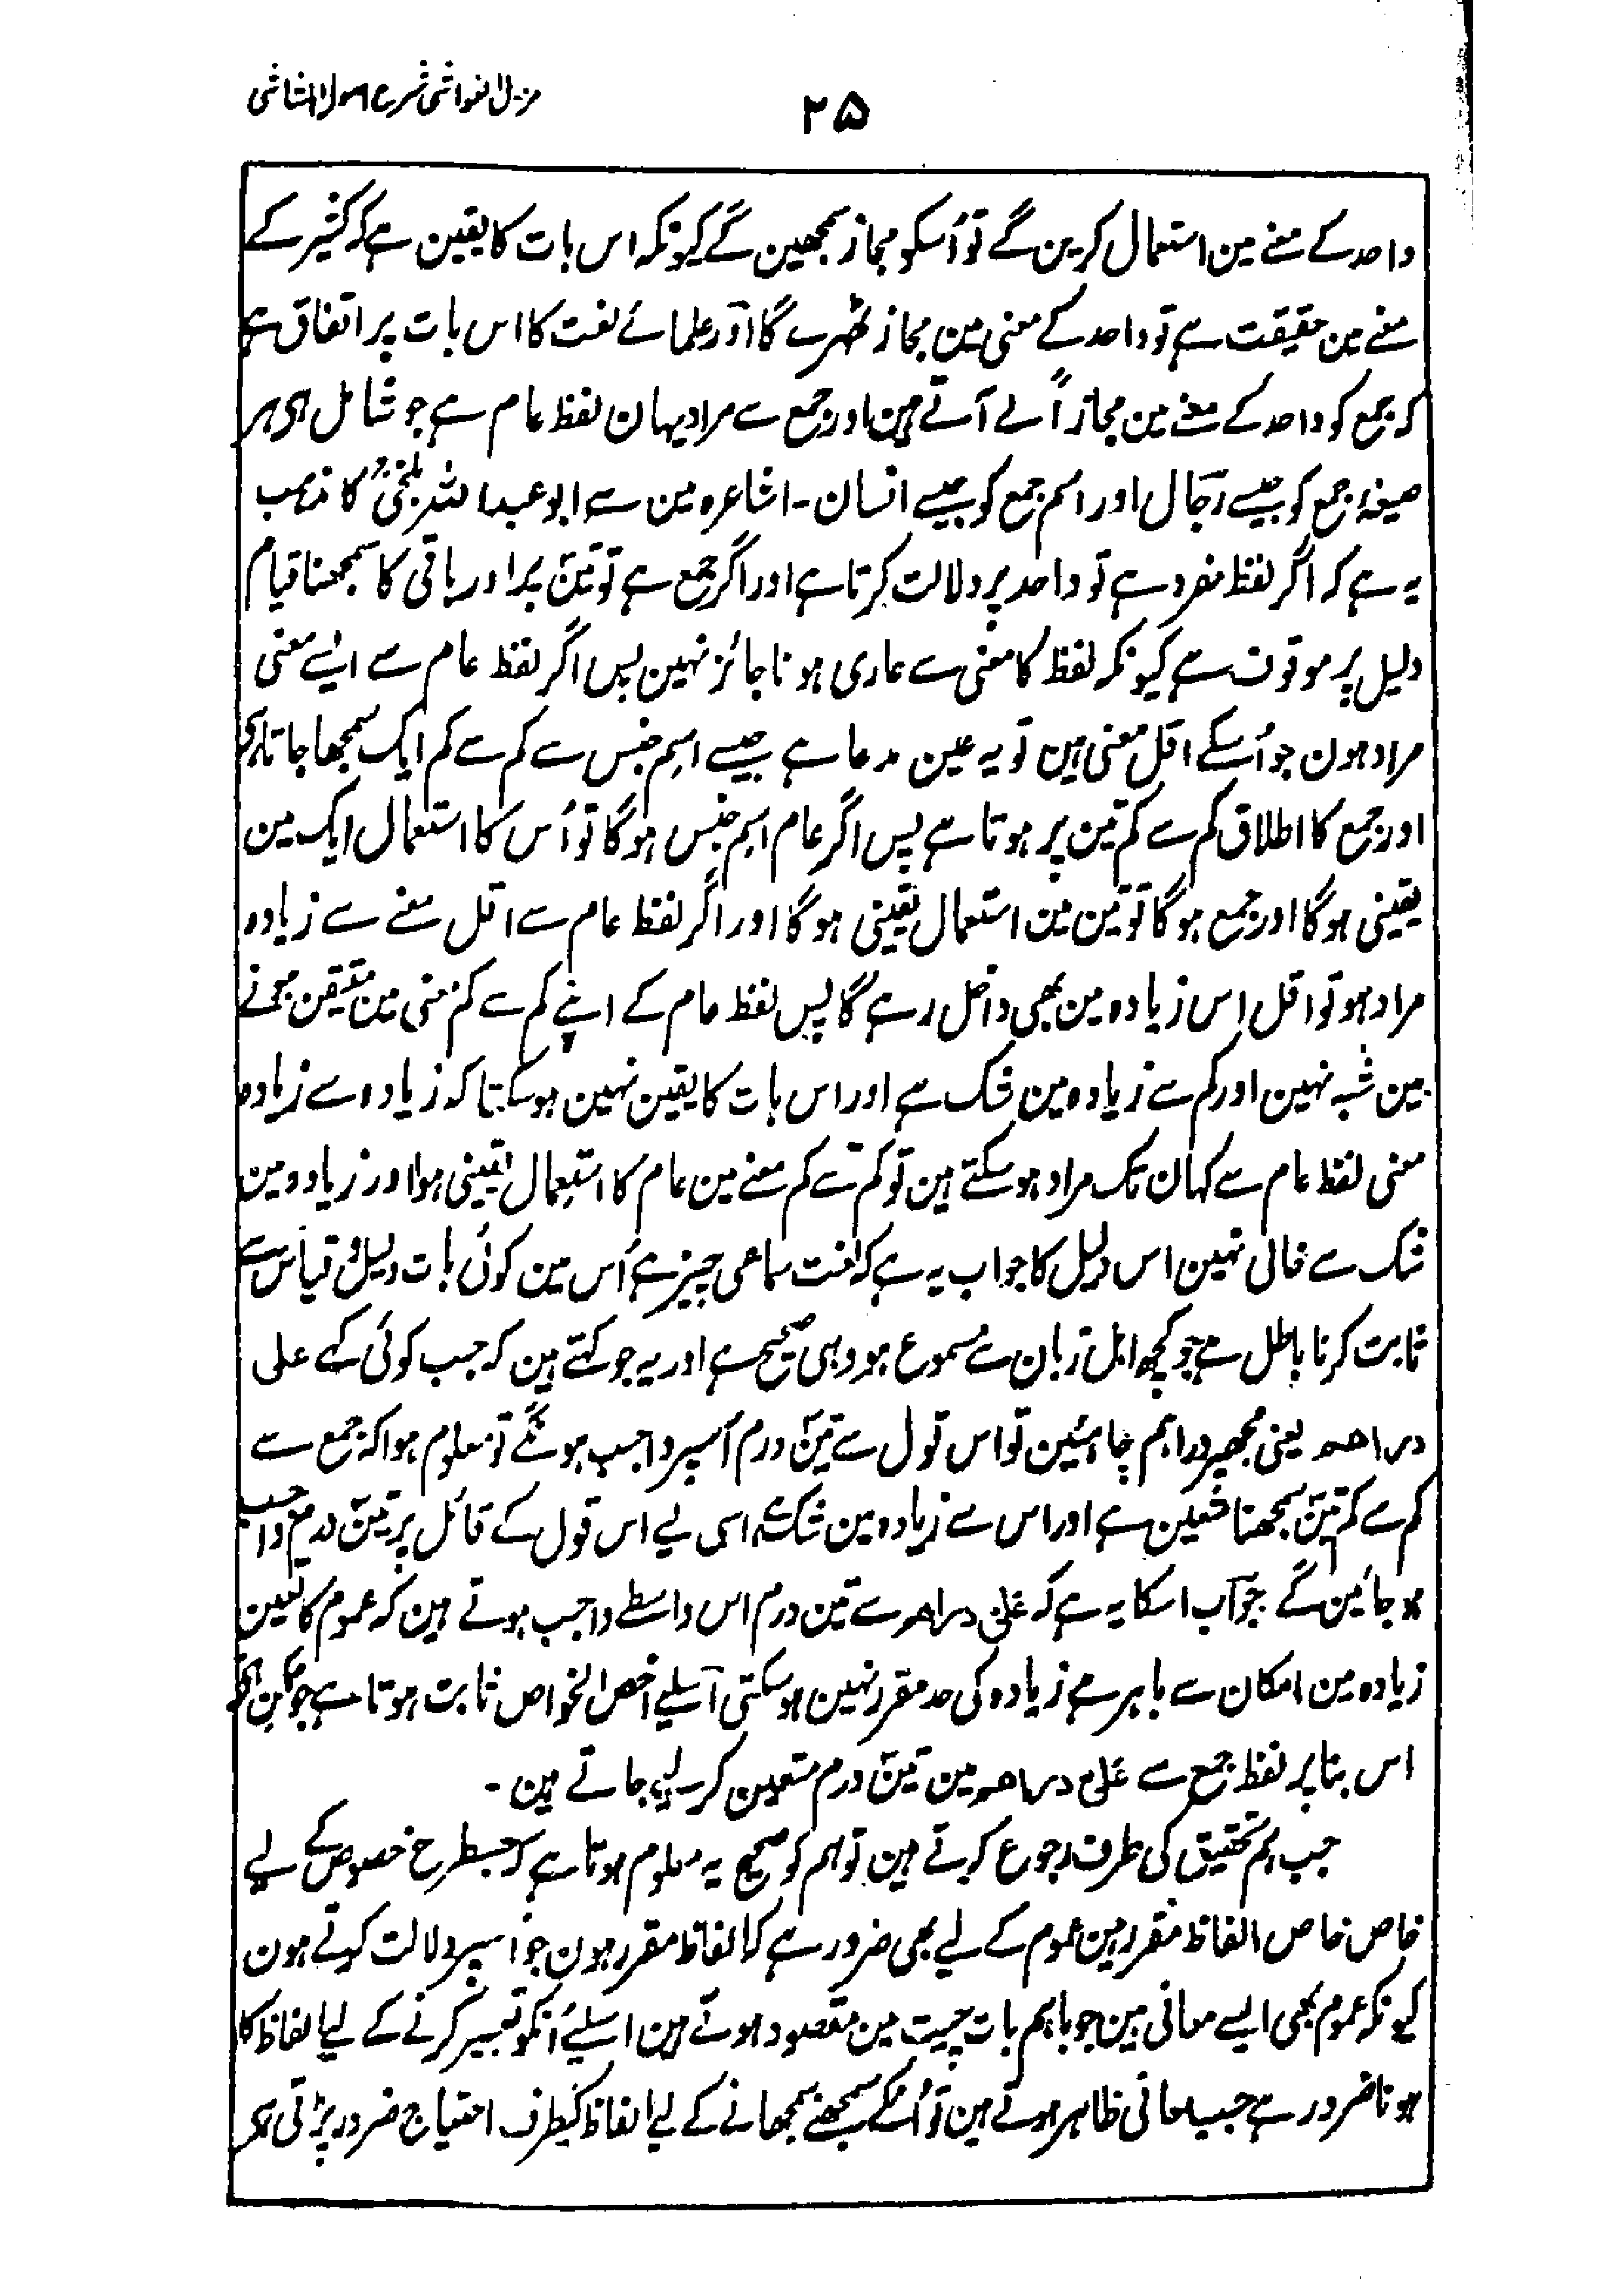 ۲۵
مزیل الغواشی شرح اصول الشاشی
واحد کے معنے مین استعمال کرین گے تو اُسکو مجاز سمجھین گے کیونکہ اس بات کا یقین ہے کہ کثیر کے
معنے مین حقیقت ہے تو واحد کے معنی مین مجاز ٹھرے گا اور علمائے لغت کا اس بات پر اتفاق ہے
کہ جمع کو واحد کے معنے مین مجازاً لے آتے ہین اور جمع سے مراد یہان لفظ عام ہے جو شامل ہے ہر
صیغۂ جمع کو جیسے رجال اور اسم جمع کو جیسے انسان۔ اشاعرہ مین سے ابو عبد اللہ بلخیؒ کا مذہب
یہ ہے کہ اگر لفظ مفرد ہے تو واحد پر دلالت کرتا ہے اور اگر جمع ہے تو تین پر اور باقی کا سمجھنا قیام
دلیل پر موقوف ہے کیونکہ لفظ کا معنی سے عاری ہونا جائز نہین پس اگر لفظ عام سے ایسے معنی
مراد ہون جو اُسکے اقل معنی ہین تو یہ عین مدعا ہے جیسے اسم جنس سے کم سے کم ایک سمجھا جاتا ہے
اور جمع کا اطلاق کم سے کم تین پر ہوتا ہے پس اگر عام اسم جنس ہوگا تو اُس کا استعمال ایک مین
یقینی ہوگا اور جمع ہوگا تو تین مین استعمال یقینی ہوگا اور اگر لفظ عام سے اقل معنے سے زیادہ
مراد ہو تو اقل اس زیادہ مین بھی داخل رہے گا پس لفظ عام کے اپنے کم سے کم معنی مین متیقن ہونے
مین شبہ نہین اور کم سے زیادہ مین شک ہے اور اس بات کا یقین نہین ہو سکتا کہ زیادہ سے زیادہ
معنی لفظ عام سے کہان تک مراد ہو سکتے ہین تو کم سے کم معنے مین عام کا استعمال یقینی ہوا اور زیادہ مین
شک سے خالی نہین اس دلیل کا جواب یہ ہے کہ لغت سماعی چیز ہے اُس مین کوئی بات دلیل و قیاس سے
ثابت کرنا باطل ہے جو کچھ اہل زبان سے مسموع ہو وہی صحیح ہے اور یہ جو کہتے ہین کہ جب کوئی کہے علی
دراھم یعنی مجھپر دراہم چاہئین تو اس قول سے تین درم اُسپر واجب ہونگے تو معلوم ہوا کہ جمع سے
کم سے کم تین سمجھنا متعین ہے اور اس سے زیادہ مین شک ہے اسی لیے اس قول کے قائل پر تین درم واجب
ہو جائین گے جواب اسکا یہ ہے کہ علی دراھم سے تین درم اس واسطے واجب ہوتے ہین کہ عموم کا تعین
زیادہ مین امکان سے باہر ہے زیادہ کی حد مقرر نہین ہو سکتی اسلیے اخص الخواص ثابت ہوتا ہے جو ممکن ہے
اس بنا پر لفظ جمع سے علی دراھم مین تین درم متعین کر لیے جاتے ہین۔
جب ہم تحقیق کی طرف رجوع کرتے ہین تو ہم کو صحیح یہ معلوم ہوتا ہے کہ جسطرح خصوص کے لیے
خاص خاص الفاظ مقرر ہین عموم کے لیے بھی ضرور ہے کہ الفاظ مقرر ہون جو اُسپر دلالت کرتے ہون
کیونکہ عموم بھی ایسے معانی ہین جو باہم بات چیت مین مقصود ہوتے ہین اسلیے اُنکو تعبیر کرنے کے لیے الفاظ کا
ہونا ضرور ہے جب معانی ظاہر ہوتے ہین تو اُنکے سمجھنے سمجھانے کے لیے الفاظ کیطرف احتیاج ضرور پڑتی ہے